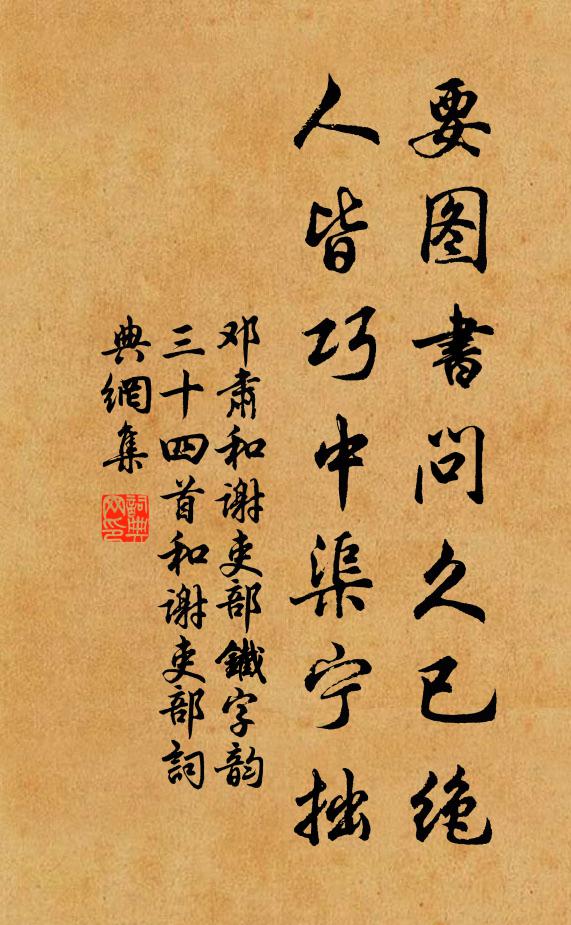 要图書问久已绝
人皆巧中渠宁拙
邓肃和谢吏部鐵字韵
三十四首和谢吏部詞
典網集
詞典
网印